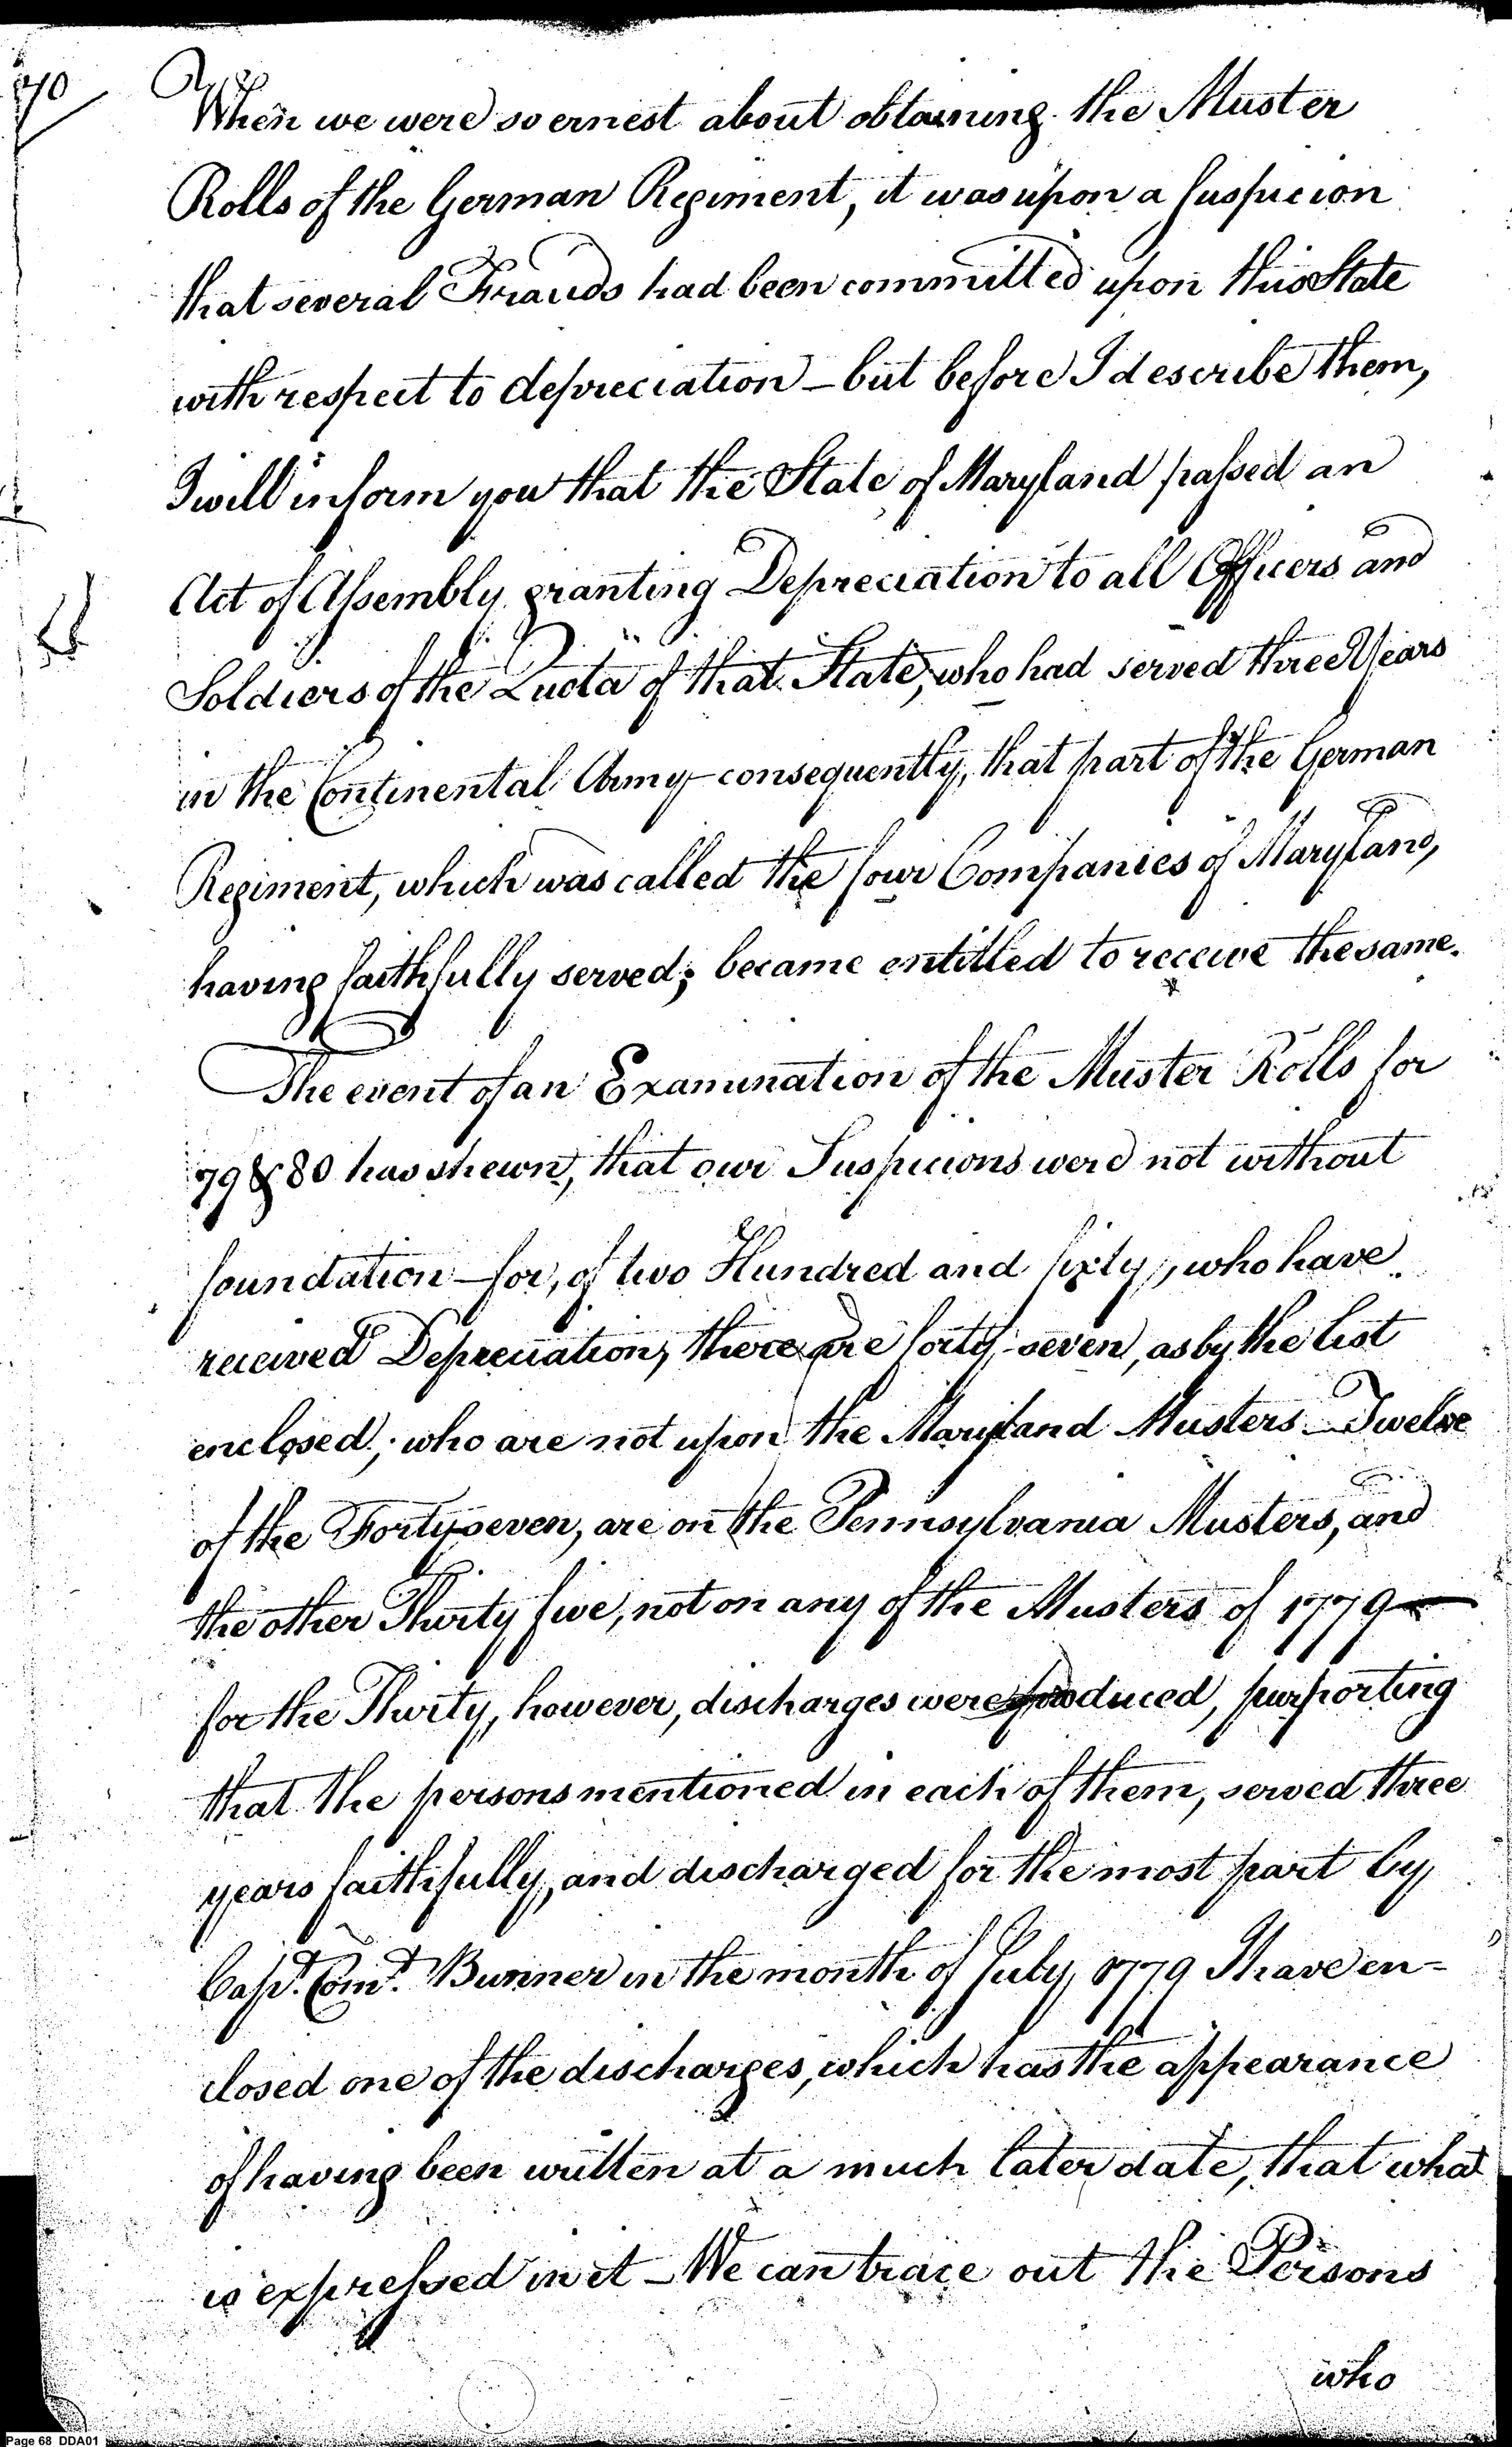 70
When we were so ernest about obtaining the Muster
Rolls of the German Regiment, it was upon a suspicion
that several Frauds had been committed upon this State
with respect to depreciation – but before I describe them,
I will inform you that the State of Maryland passed an
Act of Assembly granting Depreciation to all Officers and
Soldiers of the Quota of that State, who had served three Years
in the Continental Army – consequently, that part of the German
Regiment, which was called the four Companies of Maryland,
having faithfully served; became entitled to receive the same.
The event of an Examination of the Muster Rolls for
79 & 80 has shewn, that our Suspicions were not without
foundation – for, of two Hundred and sixty, who have
received Depreciation, there are forty-seven, as by the list
enclosed; who are not upon the Maryland Musters – Twelve
of the Forty-seven, are on the Pennsylvania Musters, and
the other Thirty five, not on any of the Musters of 1779 –
for the Thirty, however, discharges were produced, purporting
that the persons mentioned in each of them, served three
years faithfully, and discharged for the most part by
Capt. Comt. Bunner in the month of July, 1779 I have en-
closed one of the discharges, which has the appearance
of having been written at a much later date, that what
is expressed in it – We can trace out the Persons
who
Page 68 DDA01